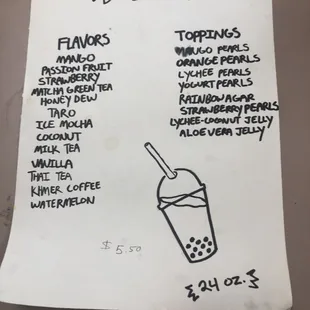 FLAVORS
MANGO
PASSION FRUIT
STRAWBERRY
MATCHA GREEN TEA
HONEY DEW
TARO
ICE MOCHA
COCONUT
MILK TEA
VANILLA
THAI TEA
KHMER COFFEE
WATERMELON
TOPPINGS
MANGO PEARLS
ORANGE PEARLS
LYCHEE PEARLS
YOGURT PEARLS
RAINBOW AGAR
STRAWBERRY PEARLS
LYCHEE-COCONUT JELLY
ALOE VERA JELLY
$5.50
{24 OZ.}